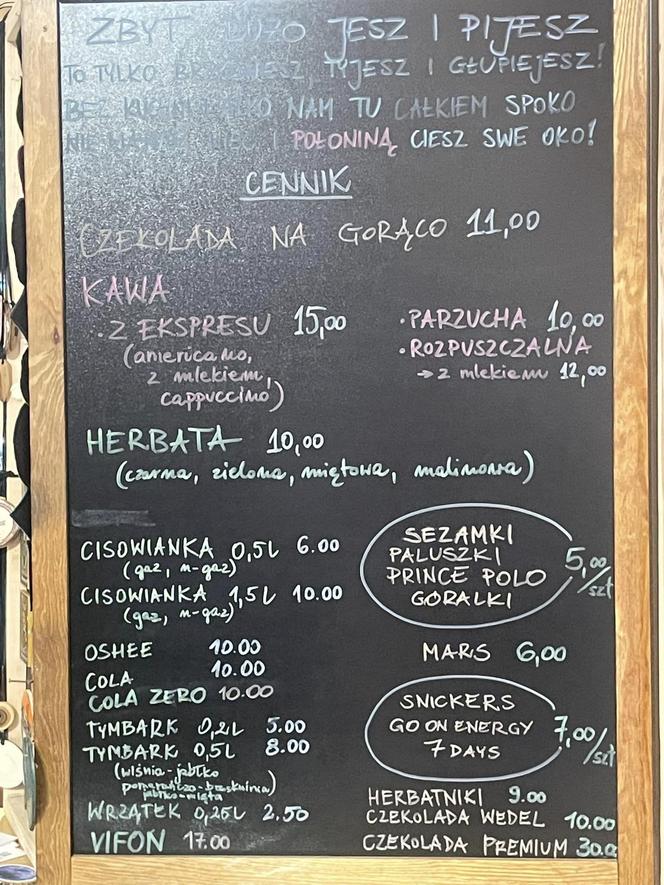 ZBYT DUŻO JESZ I PIJESZ
TO TYLKO TYJESZ I GŁUPIEJESZ!
BEZ NAM TU CAŁKIEM SPOKO
I POŁONINĄ CIESZ SWE OKO!
CENNIK
CZEKOLADA NA GORĄCO 11,00
KAWA
· Z EKSPRESU 15,00
(americano,
z mlekiem,
cappuccino)
· PARZUCHA 10,00
· ROZPUSZCZALNA
→ z mlekiem 12,00
HERBATA 10,00
(czarna, zielona, miętowa, malinowa)
CISOWIANKA 0,5L 6.00
(gaz, n-gaz)
CISOWIANKA 1,5L 10.00
(gaz, n-gaz)
OSHEE 10.00
COLA 10.00
COLA ZERO 10.00
TYMBARK 0,2L 5.00
TYMBARK 0,5L 8.00
(wiśnia-jabłko
pomarańcza-brzoskwinia)
jabłko-mięta
WRZĄTEK 0,25L 2.50
VIFON 17.00
SEZAMKI
PALUSZKI
PRINCE POLO
GÓRALKI
5,00/szt
MARS 6,00
SNICKERS
GO ON ENERGY
7 DAYS
7,00/szt
HERBATNIKI 9.00
CZEKOLADA WEDEL 10.00
CZEKOLADA PREMIUM 30.0